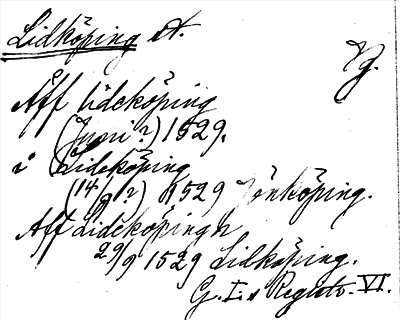 Lidköping st.
Vg.
Aff lideköping
(Juni?) 1529.
i Lideköping
(14/9?) 1529 Jönköping.
Aff Lideköping
29/9 1529 Lidköping.
G. I:s Registr. VI.